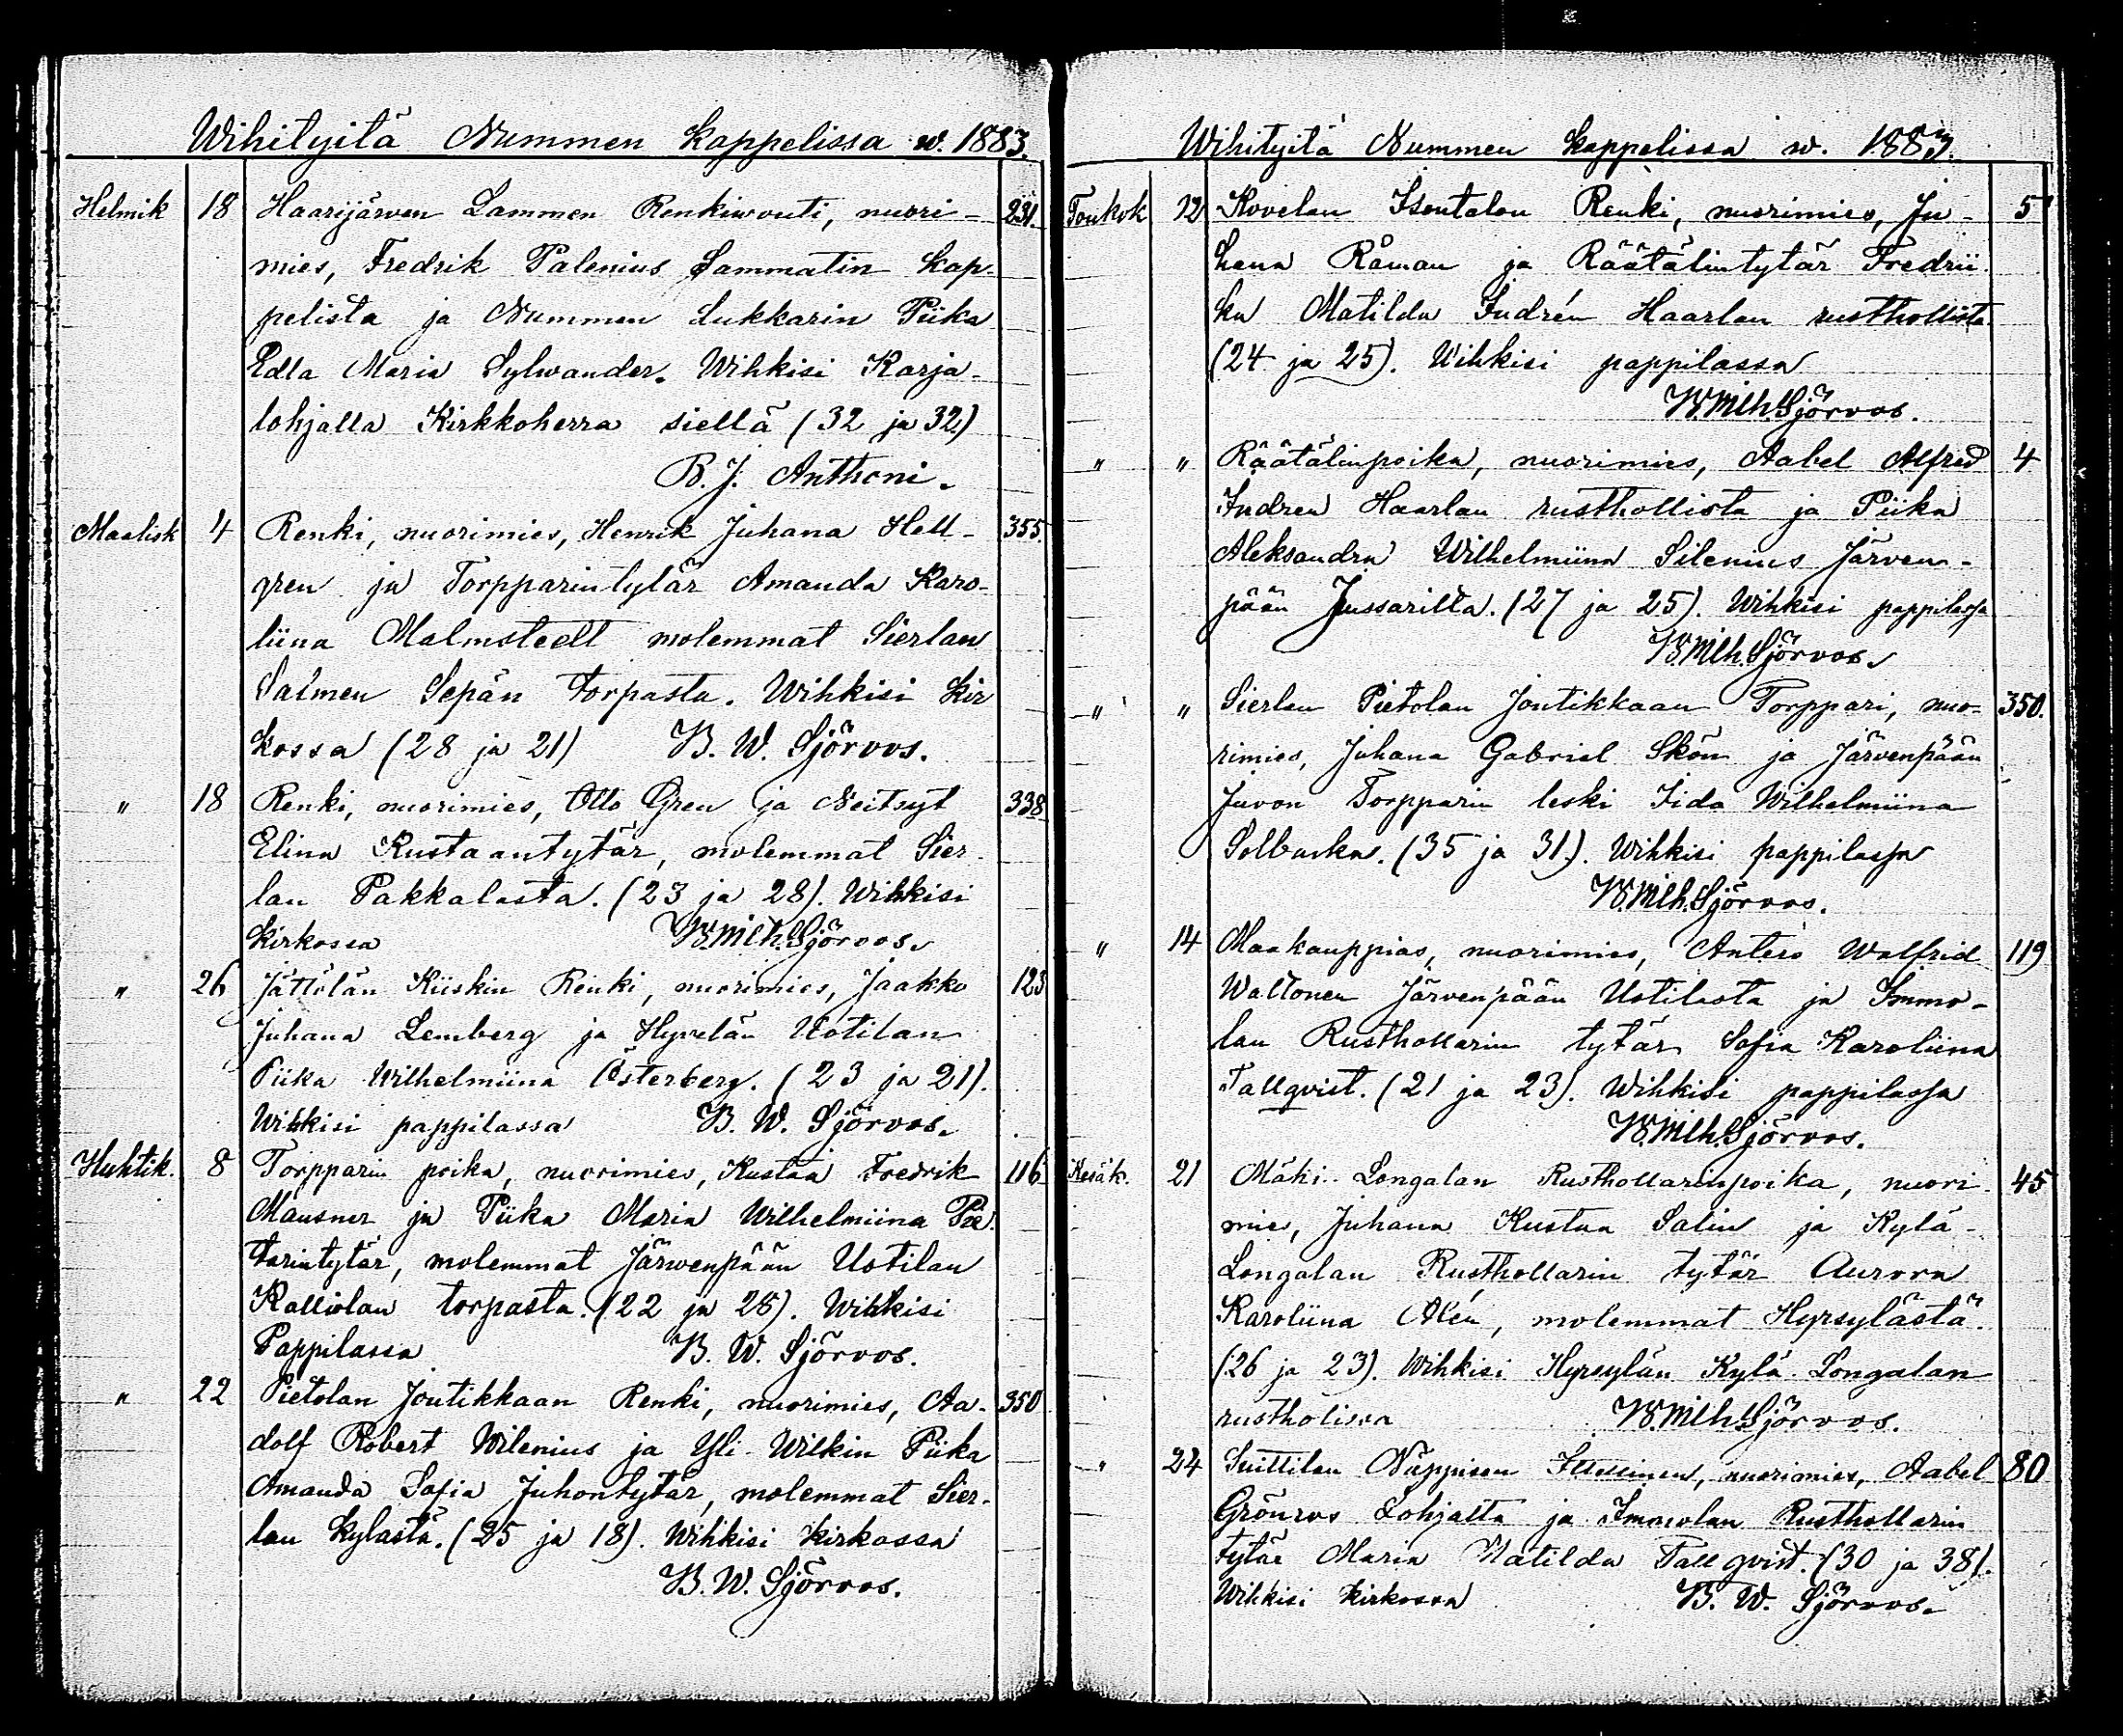 Wihityitä Nummen kappelissa w. 1883.
Helmik 18 Haarijärven Lammen Renkiwouti, nuori- 231.
mies, Fredrik Palenius Sammatin kap-
pelista ja Nummen Lukkarin Piika
Edla Maria Sylwander. Wihkisi Karja-
lohjalla Kirkkoherra siellä (32 ja 32)
B. J. Anthoni.
Maalisk 4 Renki, nuorimies, Henrik Juhana Hell- 355.
gren ja Torpparintytär Amanda Karo-
liina Malmstedt molemmat Sierlan
Salmen Sepän torpasta. Wihkisi kir
kossa (28 ja 21) B. W. Sjöroos.
" 18 Renki, nuorimies, Otto Gren ja Neitsyt 338
Elina Kustaantytär, molemmat Sier-
lan Pakkalasta. (23 ja 28). Wihkisi
kirkossa B. Wilh. Sjöroos.
" 26 Jättölän Kiiskin Renki, nuorimies, Jaakko 123
Juhana Lemberg ja Hyvelän Uotilan
Piika Wilhelmiina Österberg. (23 ja 21).
Wihkisi pappilassa B. W. Sjöroos.
Huhtik. 8 Torpparin poika, nuorimies, Kustaa Fredrik 116
Mausner ja Piika Maria Wilhelmiina Pie-
tarintytär, molemmat Järwenpään Uotilan
Kalliolan torpasta. (22 ja 28). Wihkisi
Pappilassa B. W. Sjöroos.
" 22 Pietolan Joutikkaan Renki, nuorimies, Aa- 350
dolf Robert Wilenius ja Yli-Wilkin Piika
Amanda Sofia Juhontytär, molemmat Sier-
lan kylästä. (25 ja 18). Wihkisi kirkossa
B. W. Sjöroos.
Wihityitä Nummen kappelissa w. 1883.
Toukok 12 Kovelan Isontalon Renki, nuorimies, Ju- 5
hana Råman ja Räätälintytär Fredrii-
ka Matilda Indrén Haarlan rusthollista
(24 ja 25). Wihkisi pappilassa
B. Wilh. Sjöroos.
" " Räätälinpoika, nuorimies, Aabel Alfred 4
Indren Haarlan rusthollista ja Piika
Aleksandra Wilhelmiina Silenius Järven-
pään Jussarilta. (27 ja 25). Wihkisi pappilassa
B. Wilh. Sjöroos.
" " Sierlan Pietolan Joutikkaan Torppari, nuo- 350.
rimies, Juhana Gabriel Skön ja Järvenpään
Juvon Torpparin leski Iida Wilhelmiina
Solbacka. (35 ja 31). Wihkisi pappilassa
B. Wilh. Sjöroos.
" 14 Maakauppias, nuorimies, Antero Walfrid 119
Waltonen Järvenpään Uotilasta ja Immo-
lan Rusthollarin tytär Sofia Karoliina
Tallqvist. (21 ja 23). Wihkisi pappilassa
B. Wilh. Sjöroos.
Kesäk. 21 Mäki-Longalan Rusthollarinpoika, nuori- 45
mies, Juhana Kustaa Salin ja Kylä-
Longalan Rusthollarin tytär Aurora
Karoliina Alén, molemmat Hyrsylästä.
(26 ja 23). Wihkisi Hyrsylän Kylä-Longalan
rustholissa B. Wilh. Sjöroos.
" 24 Suittilan Näppisen Itsellinen, nuorimies, Aabel 80
Grönros Lohjalta ja Immolan Rusthollarin
tytär Maria Matilda Tallqvist. (30 ja 38).
Wihkisi kirkossa B. W. Sjöroos.